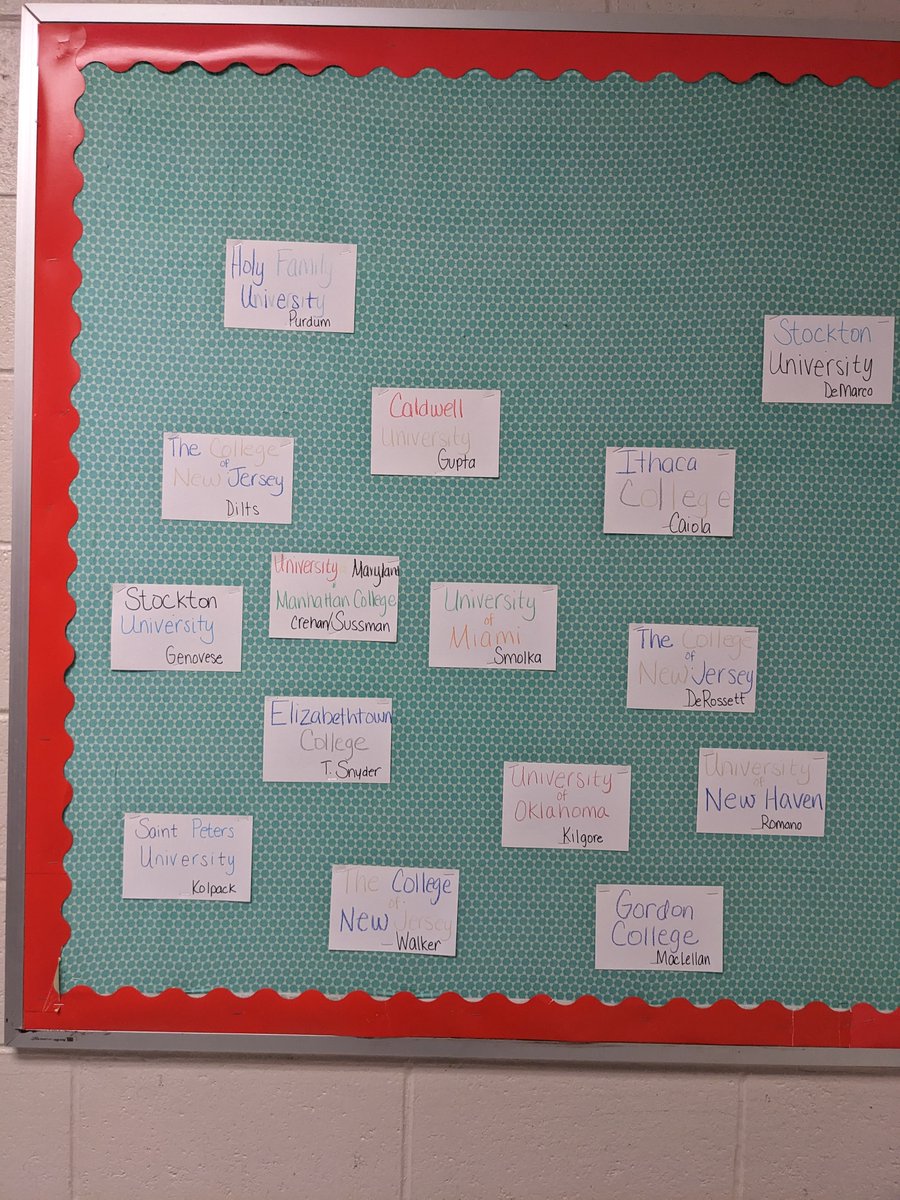 Holy Family
University
Purdum
Stockton
University
DeMarco
Caldwell
University
Gupta
The College
of
New Jersey
Dilts
Ithaca
College
Caiola
University Maryland
Manhattan College
Crehan/Sussman
Stockton
University
Genovese
University
of
Miami
Smolka
The College
of
New Jersey
DeRossett
Elizabethtown
College
T. Snyder
University
of
Oklahoma
Kilgore
University
of
New Haven
Romano
Saint Peters
University
Kolpack
The College
of
New Jersey
Walker
Gordon
College
MacLellan